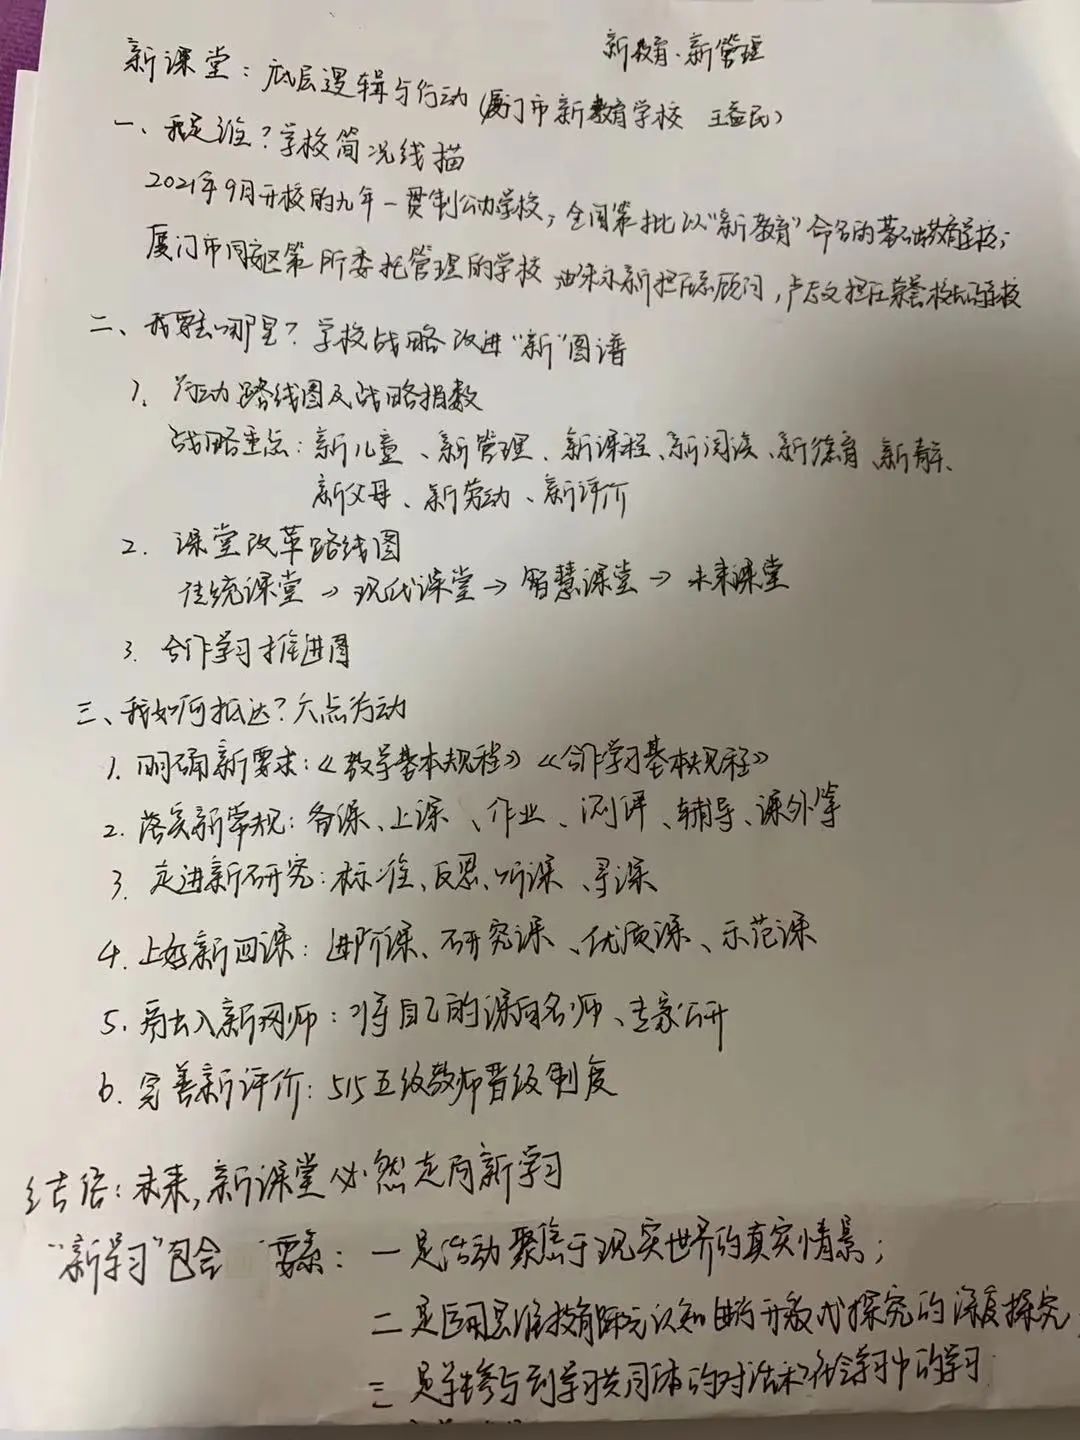 新教育·新管理
新课堂：底层逻辑与行动（厦门市新教育学校 王益民）
一、我是谁？学校简况线描
2021年9月开校的九年一贯制公办学校；全国第批以“新教育”命名的基础教育学校；
厦门市同安区第 所委托管理的学校 由朱永新担任总顾问，卢志文担任荣誉校长的学校
二、我要去哪里？学校战略改进“新”图谱
1、行动路线图及战略指数
战略重点：新儿童、新管理、新课程、新阅读、新德育、新青年、
新父母、新劳动、新评价
2. 课堂改革路线图
传统课堂→现代课堂→智慧课堂→未来课堂
3. 合作学习推进图
三、我如何抵达？六点行动
1. 明确新要求：《教学基本规程》《合作学习基本规程》
2. 落实新常规：备课、上课、作业、测评、辅导、课外等
3. 走进新研究：标准、反思、听课、寻课
4. 上好新四课：进阶课、研究课、优质课、示范课
5. 入新网师：将自己的课向名师、专家公开
6. 完善新评价：515五级教师晋级制度
结语：未来，新课堂必然走向新学习
“新学习”包含 要素：一是活动聚焦于现实世界的真实情景；
二是 思维 元认知 开放式探究的深度探究
三 是学生参与到学习共同体的对话和社会学习中的学习